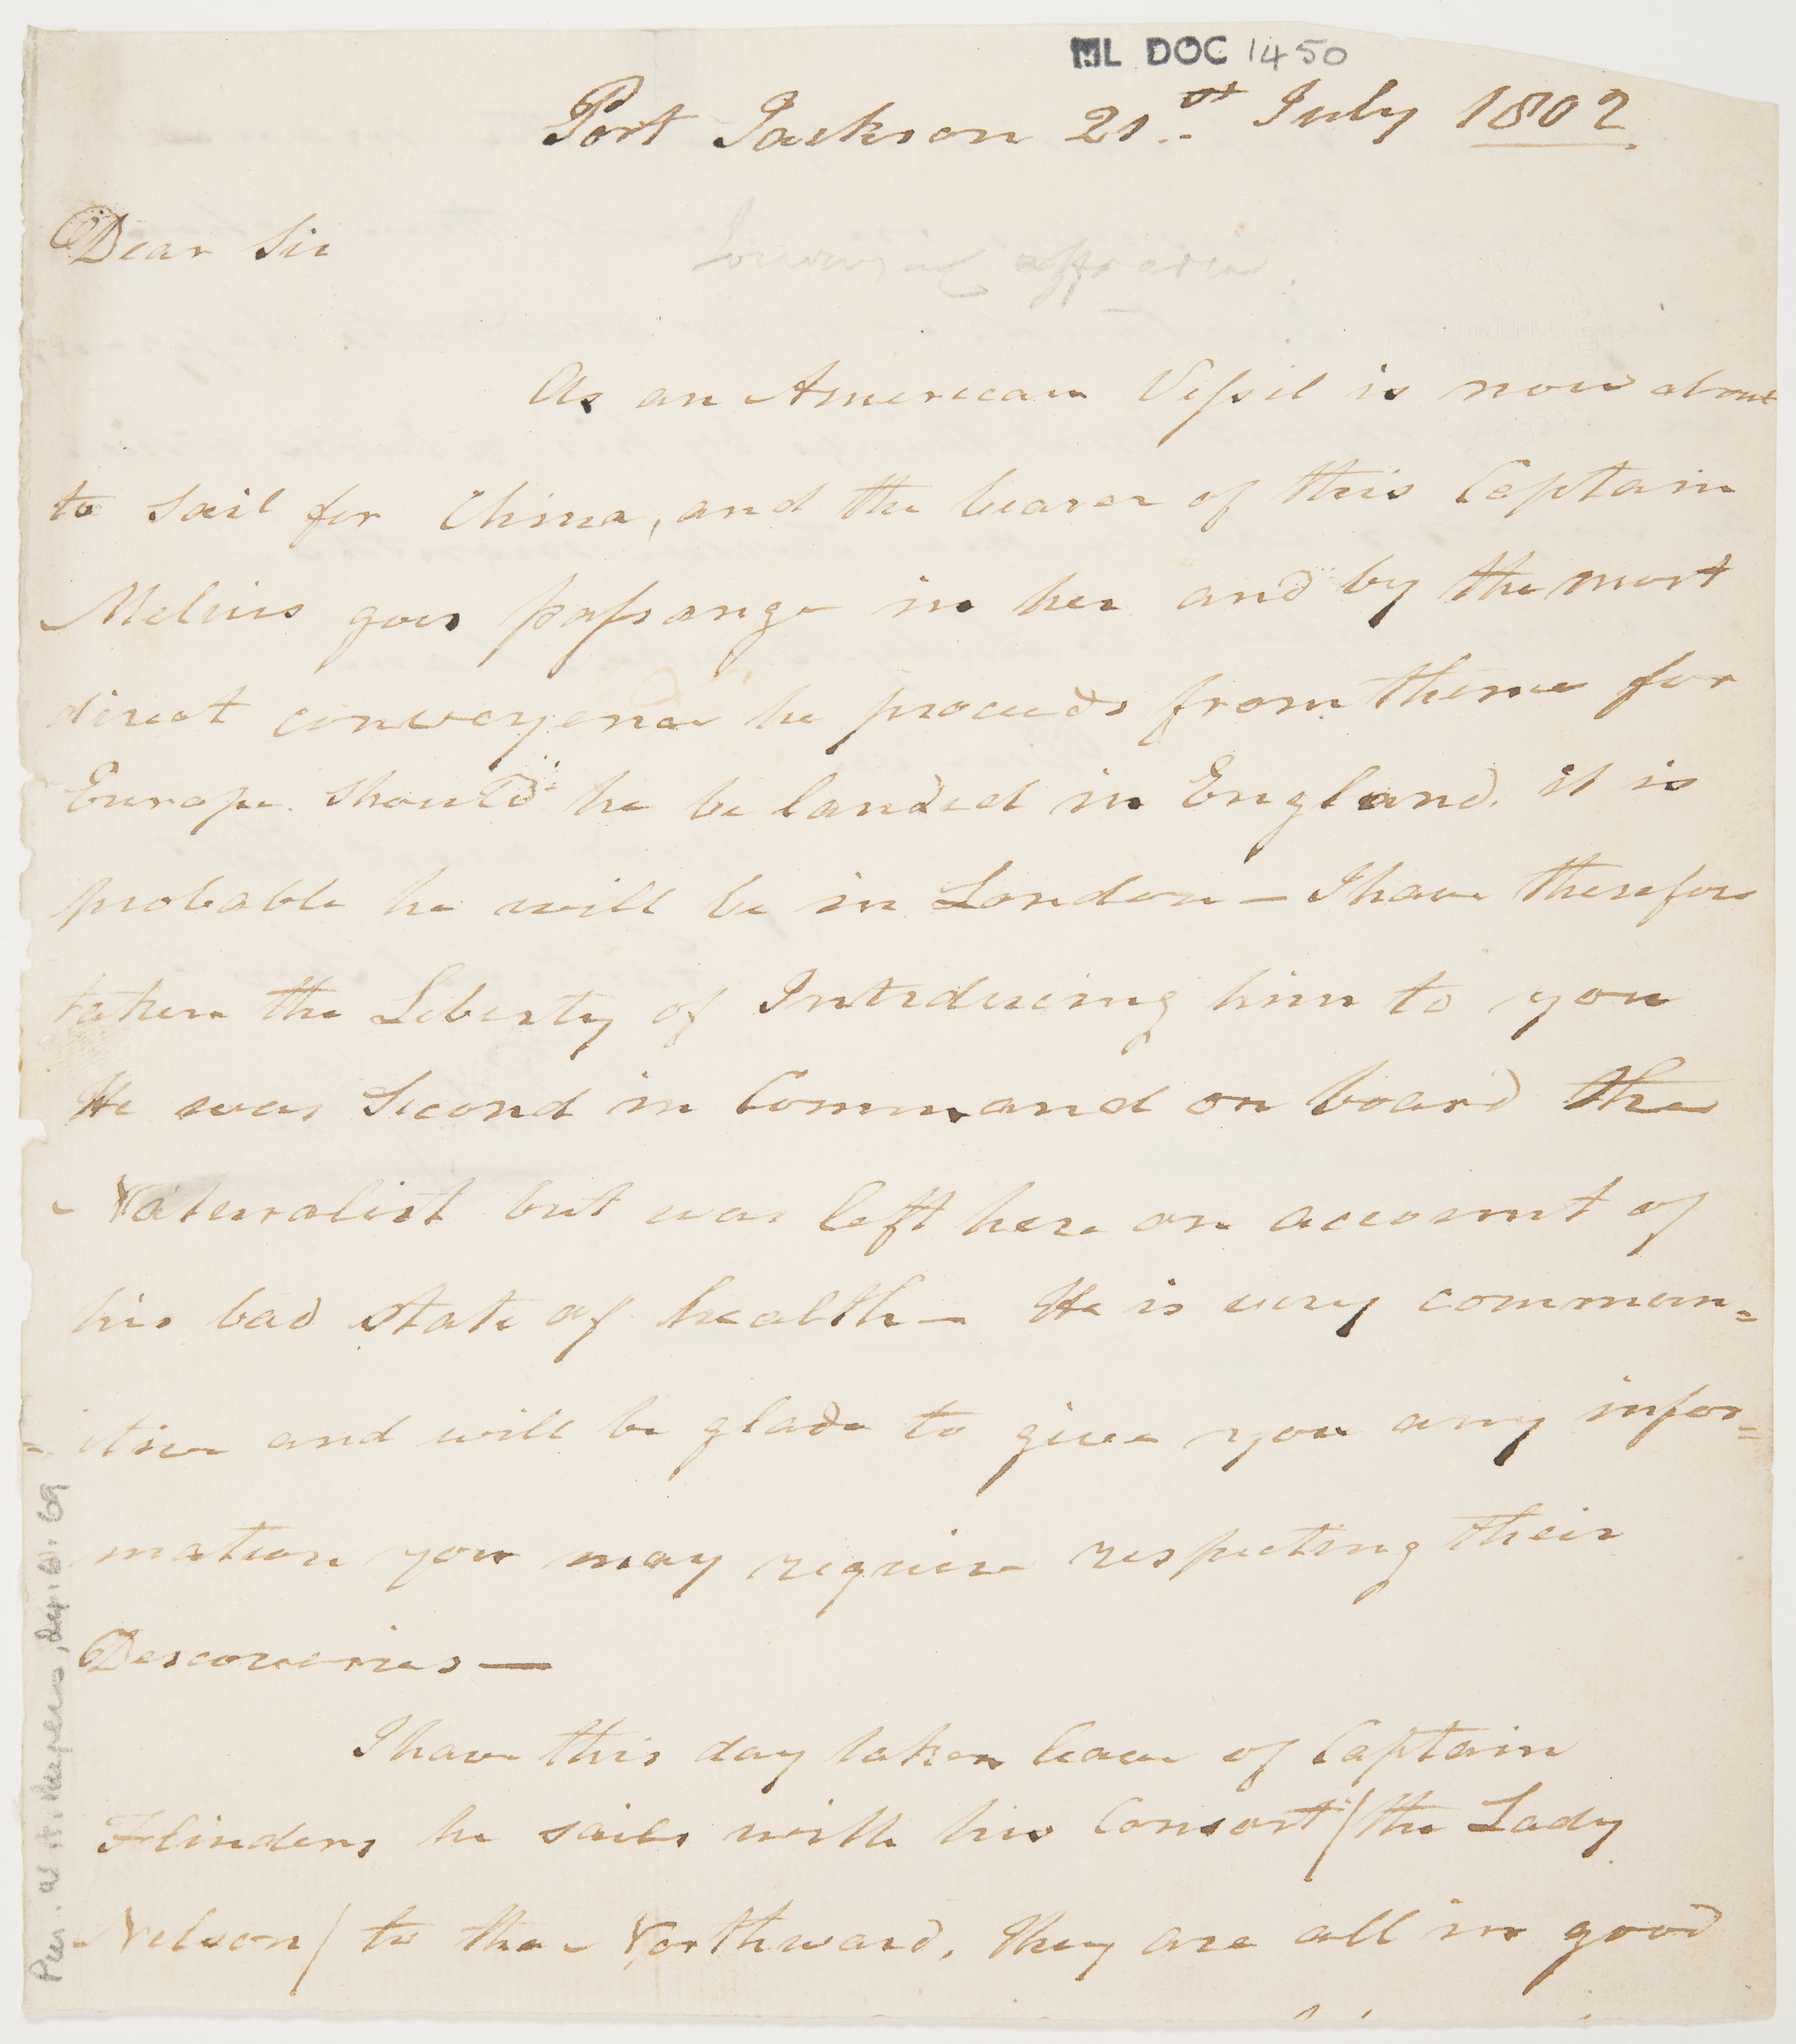 ML DOC 1450
Port Jackson 21st July 1802
Dear Sir
As an American Vessel is now about
to Sail for China, and the bearer of this Captain
Melius goes passange in her and by the most
direct conveyence he proceeds from thence for
Europe. Should he be landed in England. it is
probable he will be in London — I have therefore
taken the Liberty of Introducing him to you
He was Second in Command on board the
Naturalist but was left here on account of
his bad State of health — He is very commun=
=itive and will be glade to give you any infor=
mation you may require respecting their
Descoveries —
I have this day taken leave of Captain
Flinders he sails with his Consort / the Lady
Nelson / to the Northward, they are all in good